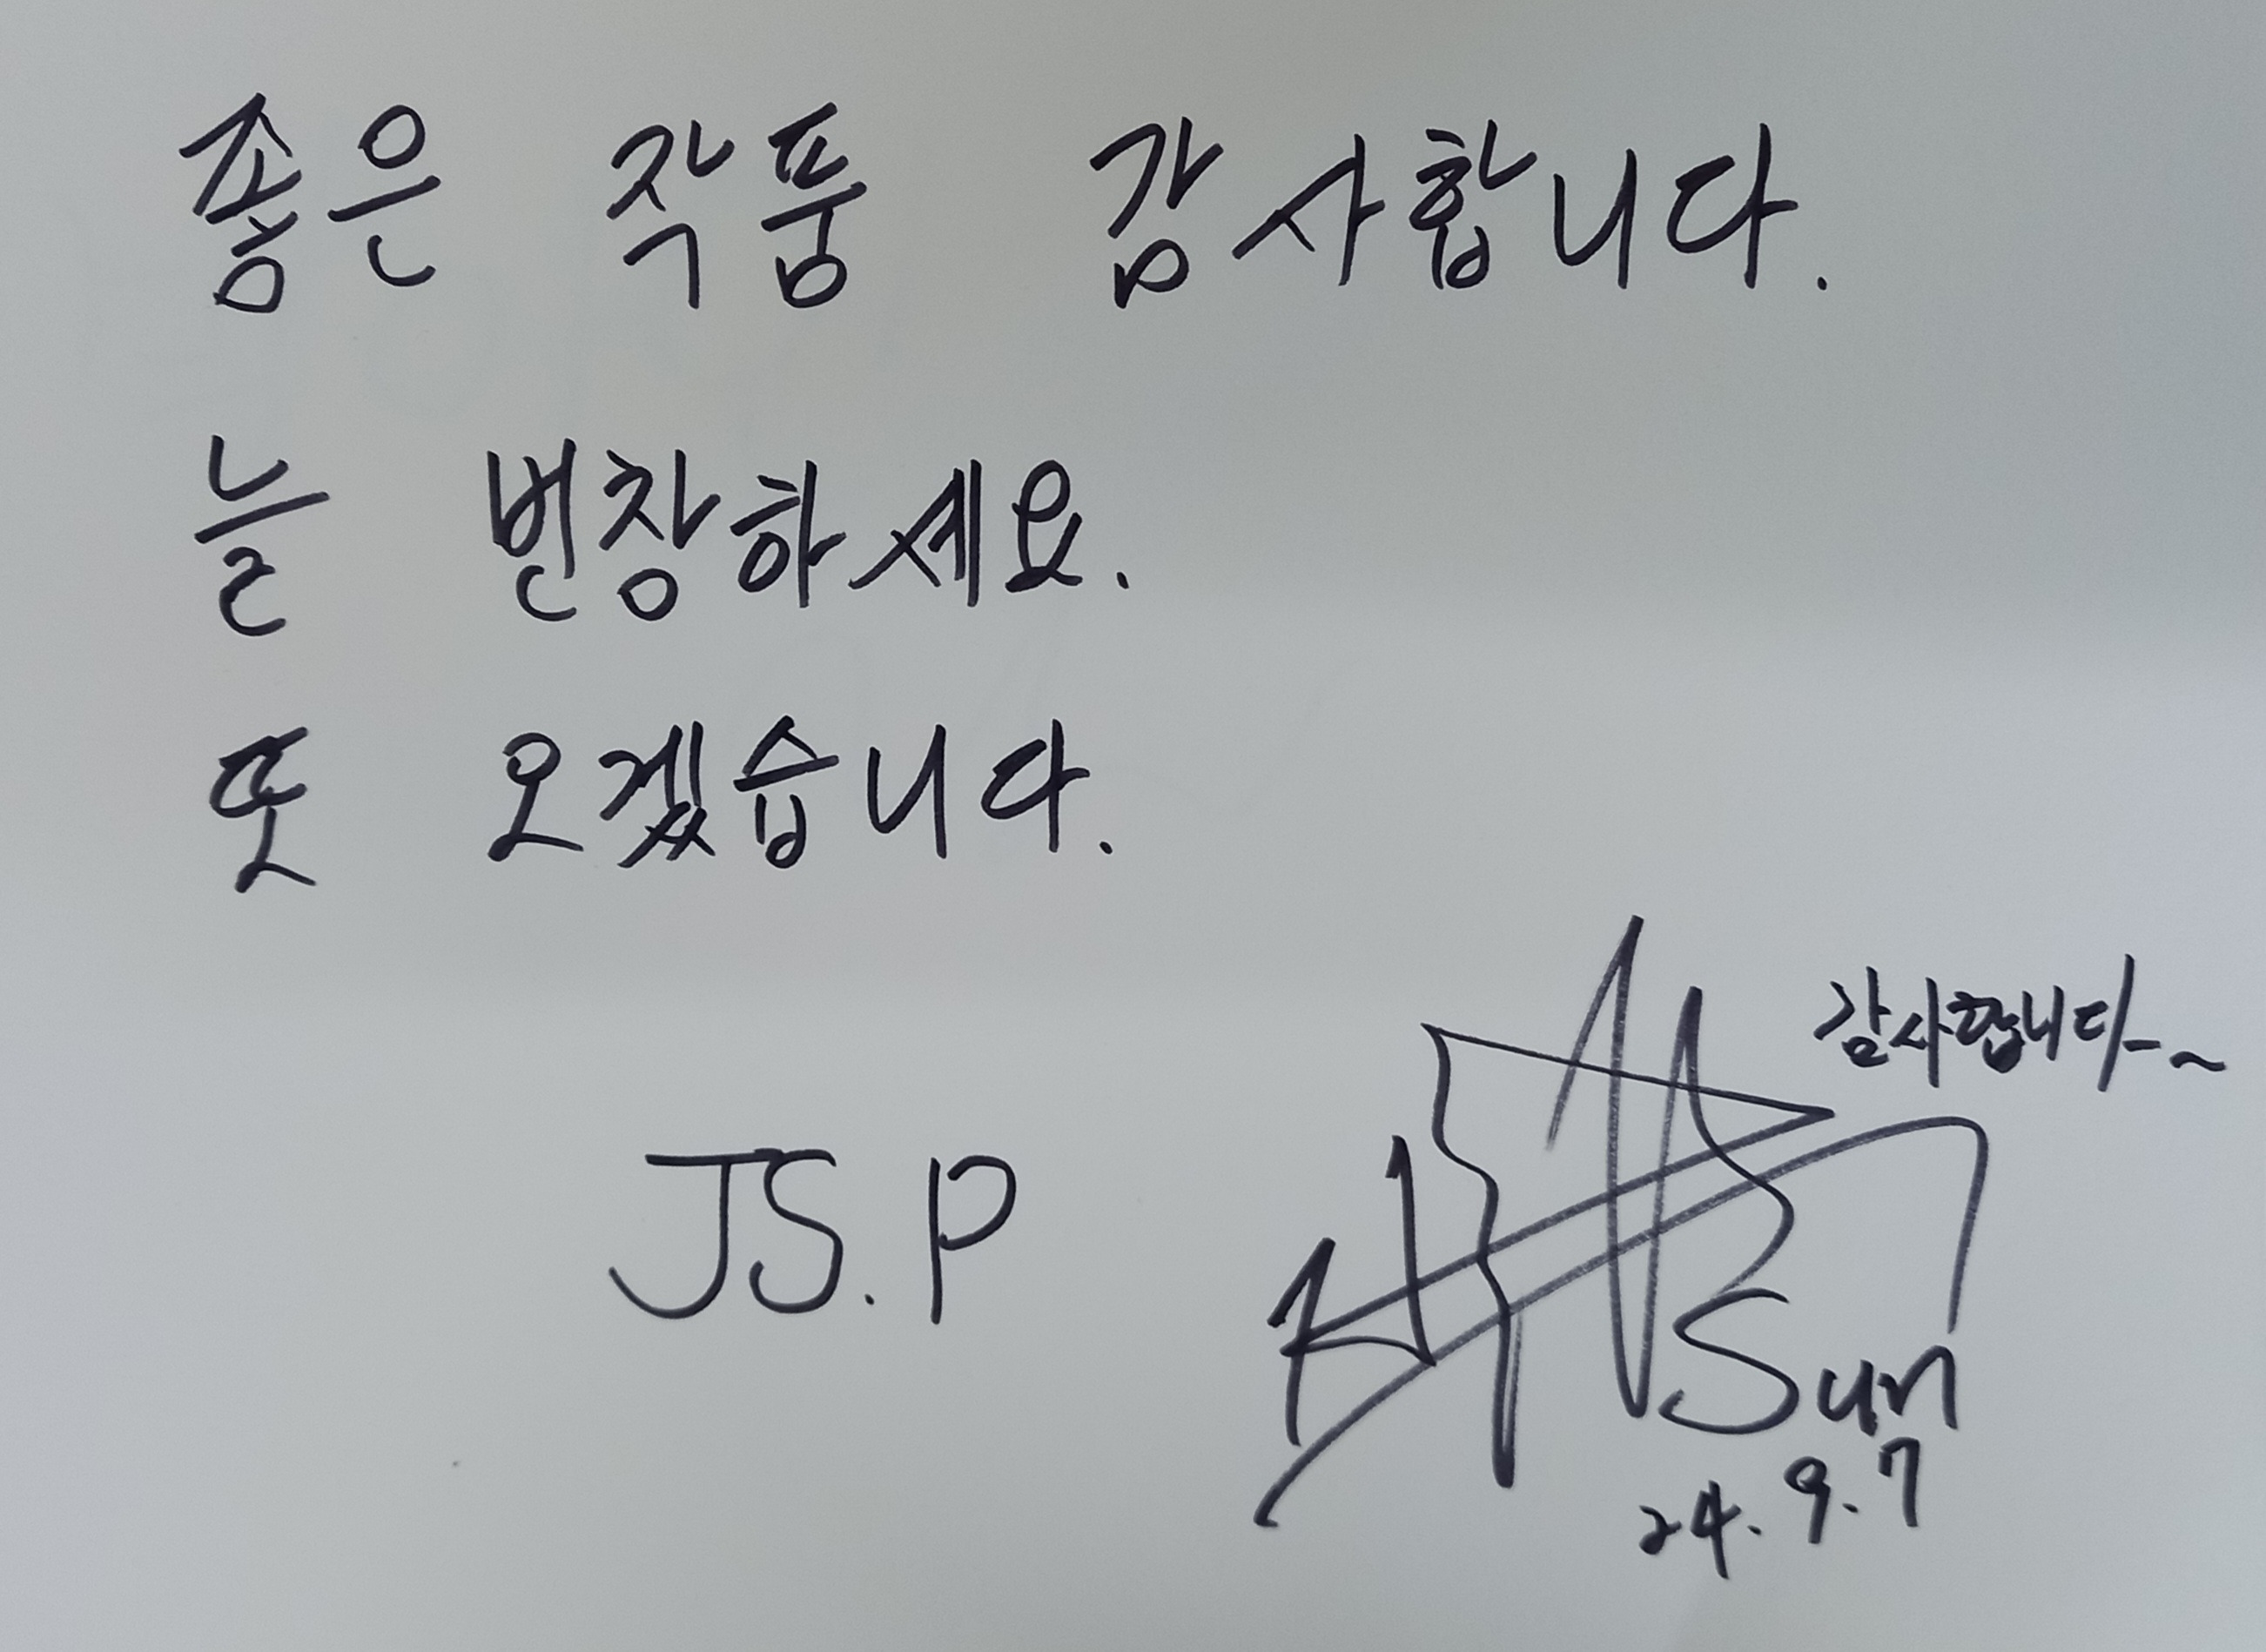 좋은 작품 감사합니다.
늘 번창하세요.
또 오겠습니다.
감사합니다~
JS.P
Sun
24.9.7